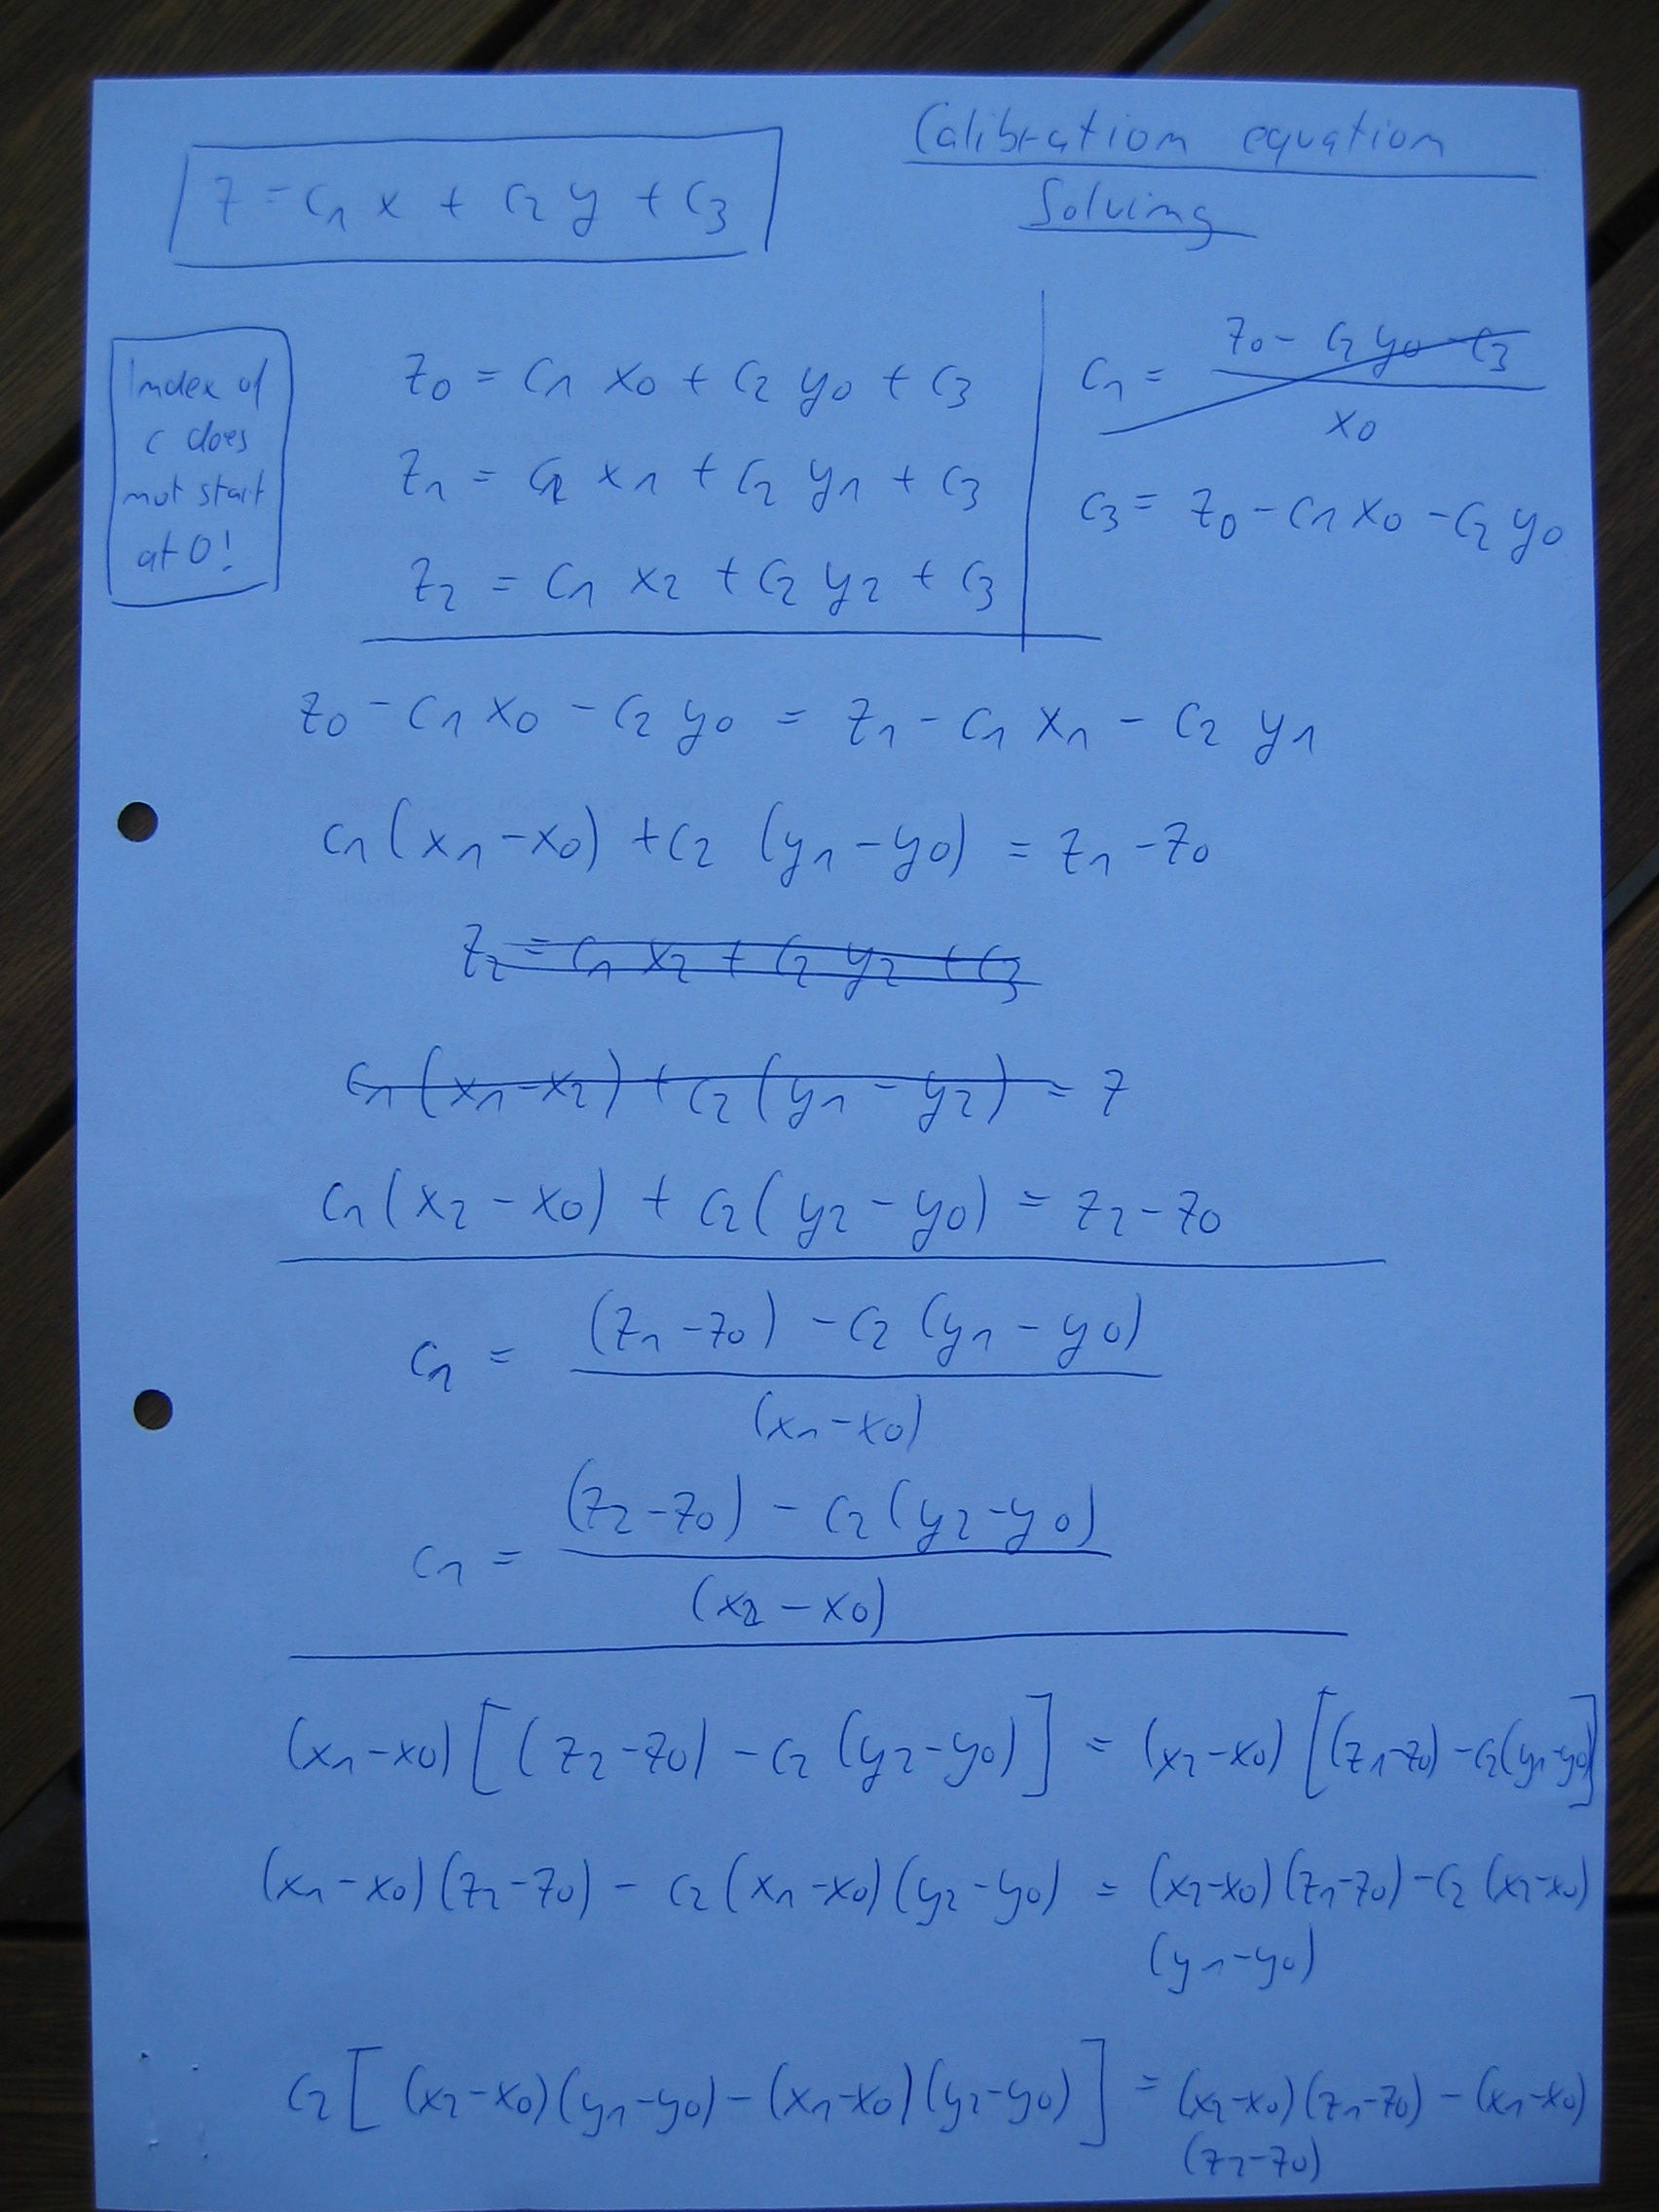 Calibration equation
Solving
z = c₁ x + c₂ y + c₃
Index of
c does
not start
at 0!
z₀ = c₁ x₀ + c₂ y₀ + c₃
z₁ = c₁ x₁ + c₂ y₁ + c₃
z₂ = c₁ x₂ + c₂ y₂ + c₃
z₀ - c₂ y₀ - c₃
c₁ =
x₀
c₃ = z₀ - c₁ x₀ - c₂ y₀
z₀ - c₁ x₀ - c₂ y₀ = z₁ - c₁ x₁ - c₂ y₁
c₁ (x₁ - x₀) + c₂ (y₁ - y₀) = z₁ - z₀
z₂ = c₁ x₂ + c₂ y₂ + c₃
c₁ (x₁ - x₂) + c₂ (y₁ - y₂) = z
c₁ (x₂ - x₀) + c₂ (y₂ - y₀) = z₂ - z₀
(z₁ - z₀) - c₂ (y₁ - y₀)
c₁ =
(x₁ - x₀)
(z₂ - z₀) - c₂ (y₂ - y₀)
c₁ =
(x₂ - x₀)
(x₁ - x₀) [(z₂ - z₀) - c₂ (y₂ - y₀)] = (x₂ - x₀) [(z₁ - z₀) - c₂ (y₁ - y₀)]
(x₁ - x₀) (z₂ - z₀) - c₂ (x₁ - x₀) (y₂ - y₀) = (x₂ - x₀) (z₁ - z₀) - c₂ (x₂ - x₀)
(y₁ - y₀)
c₂ [(x₂ - x₀) (y₁ - y₀) - (x₁ - x₀) (y₂ - y₀)] = (x₂ - x₀) (z₁ - z₀) - (x₁ - x₀)
(z₂ - z₀)